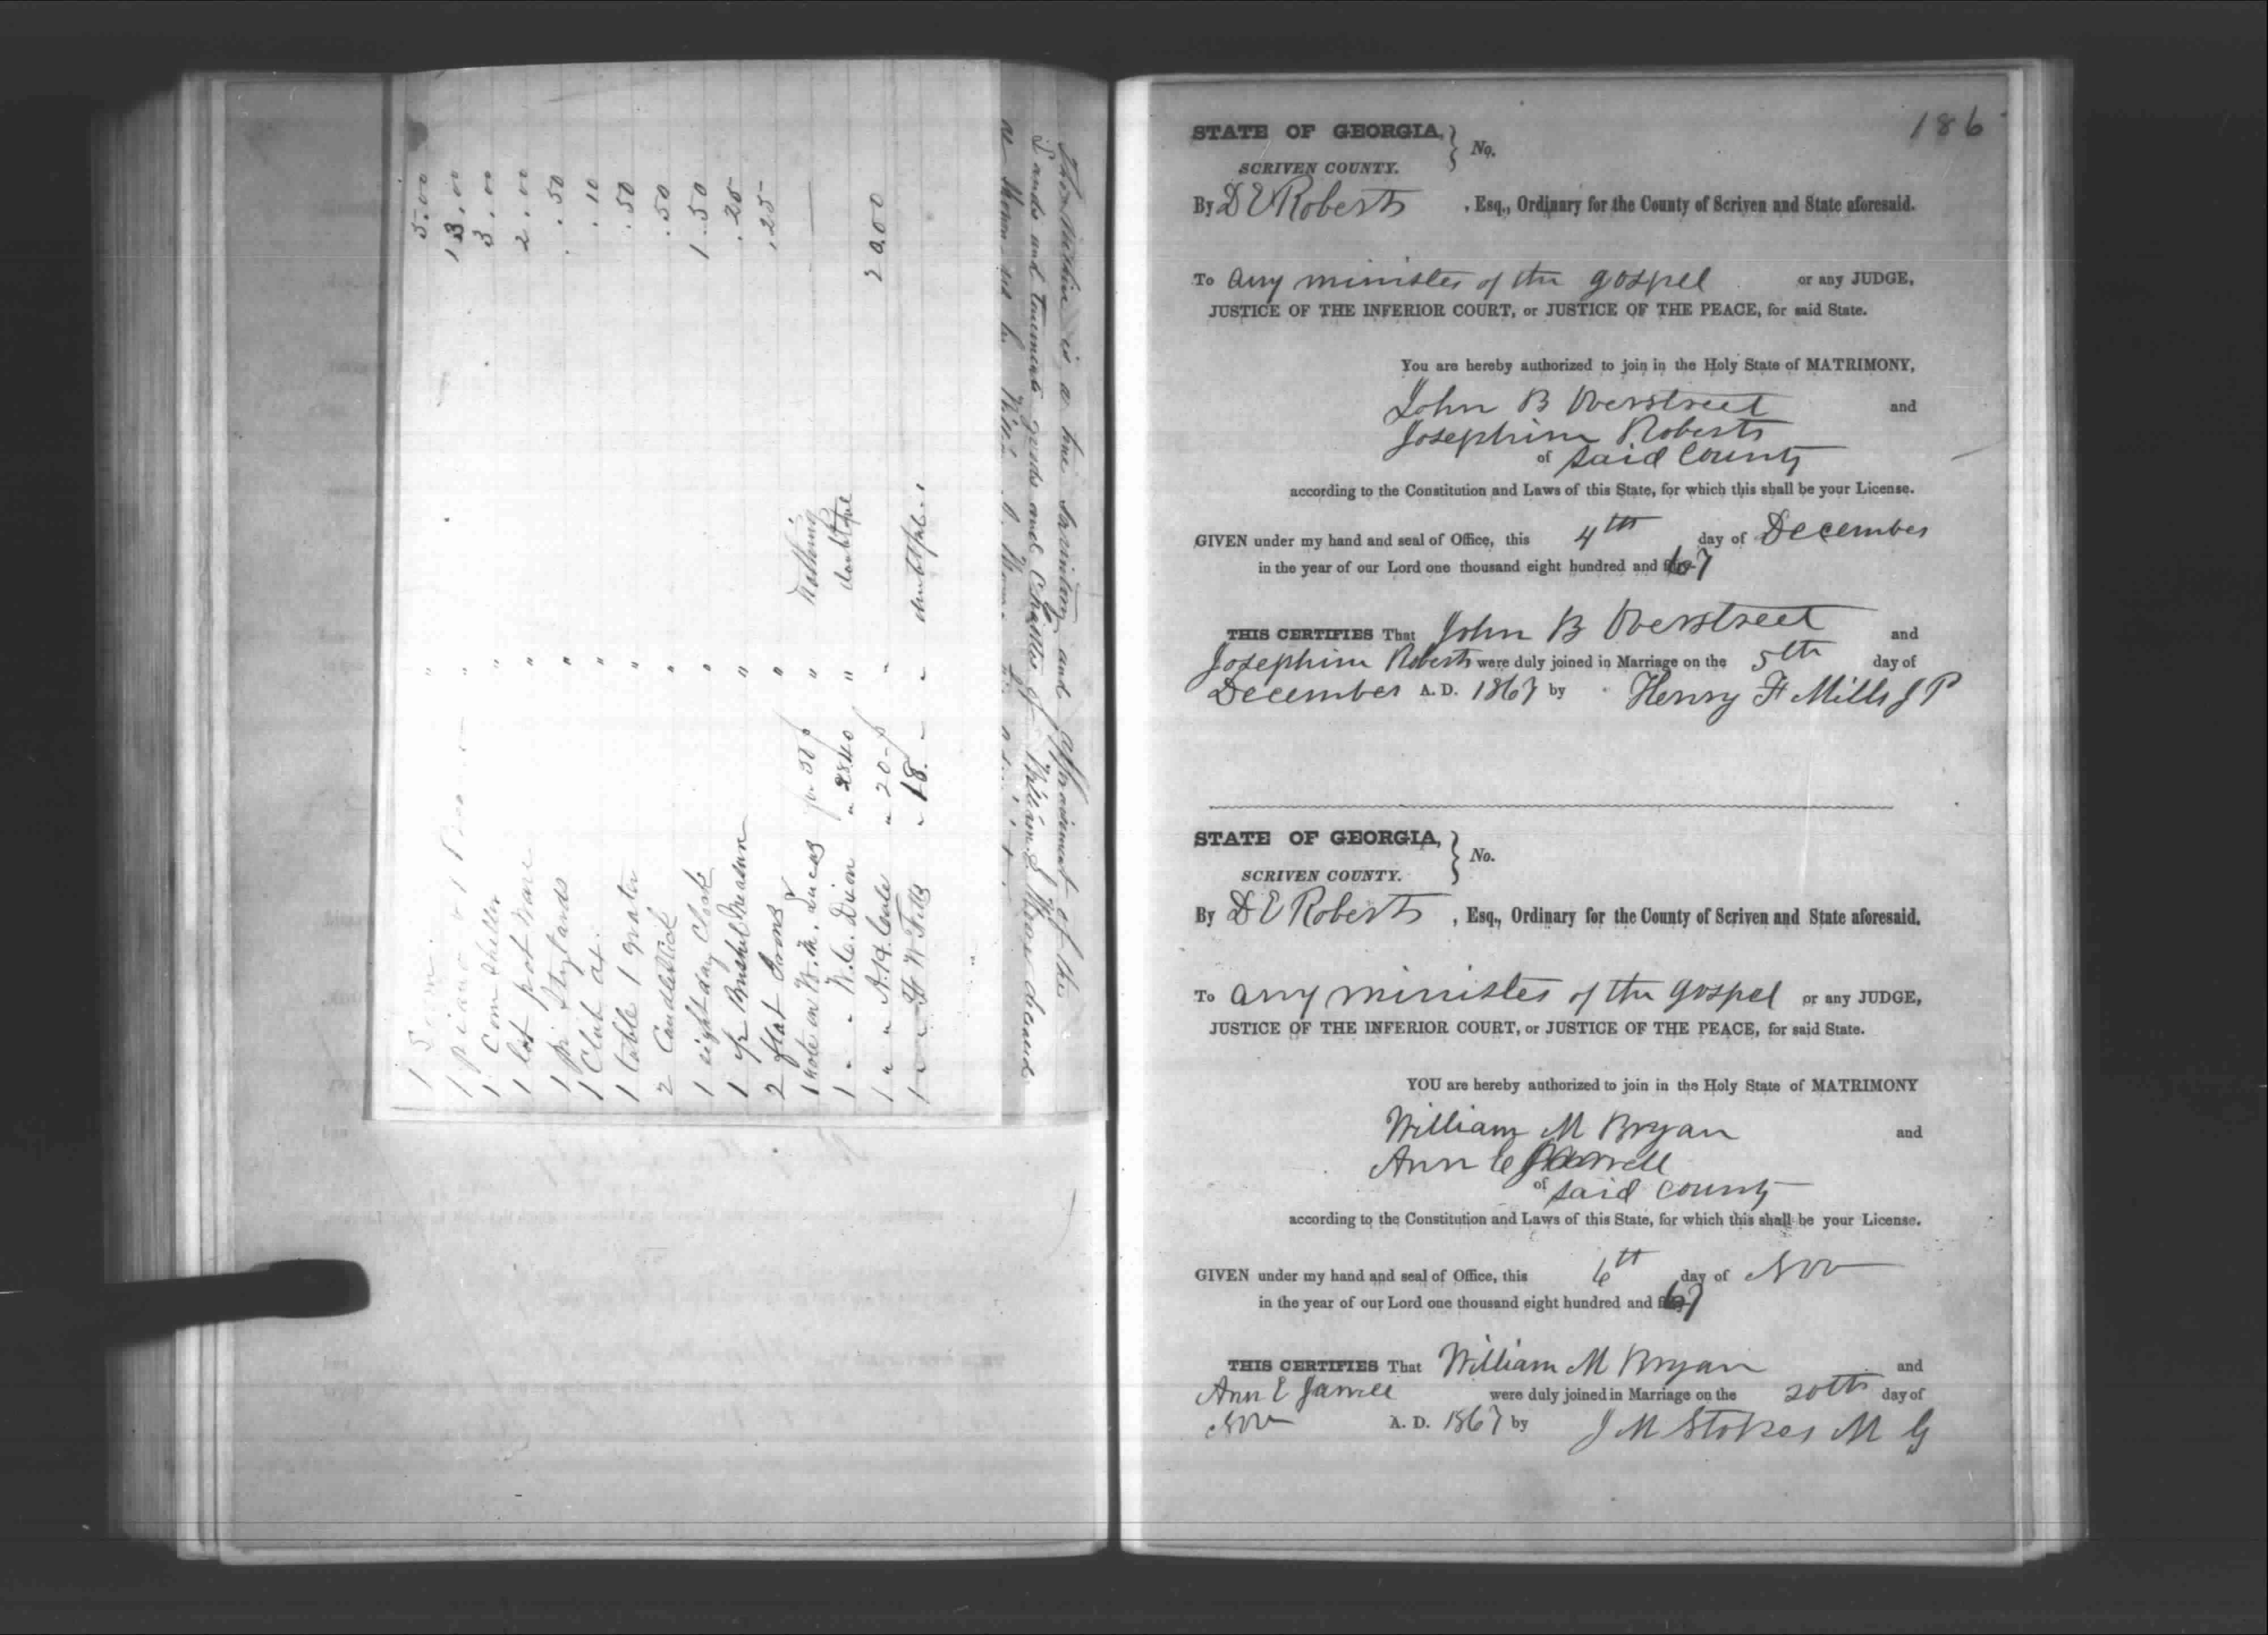 5.00
1 piano 13.00
1 Corn Sheller " 3.00
1 lot pot Ware " 2.00
1 pr Stylards " .50
1 Club ax. " .10
1 table 1 grater " .50
2 CandleStick " .50
1 eight day Clock " 1.50
1 Bushel Measure " .25
2 flat Irons " .25
1 note on W. M. Lucas for 50 " Nothing
1 " " W. C. Dixon " 28.40 " doubtful
1 " " A. H. Cole " 20 " 20.00
1 " " W " 18. " doubtful
is a true inventory and appraisment of the
Lands and Tenements goods and Chattles of William deceased
as shown
186
STATE OF GEORGIA, } No.
SCRIVEN COUNTY.
By D E Roberts, Esq., Ordinary for the County of Scriven and State aforesaid.
To any minister of the gospel or any JUDGE,
JUSTICE OF THE INFERIOR COURT, or JUSTICE OF THE PEACE, for said State.
You are hereby authorized to join in the Holy State of MATRIMONY,
John B Overstreet and
Josephine Roberts
of said County
according to the Constitution and Laws of this State, for which this shall be your License.
GIVEN under my hand and seal of Office, this 4th day of December
in the year of our Lord one thousand eight hundred and 67
THIS CERTIFIES That John B Overstreet and
Josephine Roberts were duly joined in Marriage on the 5th day of
December A. D. 1867 by Henry H Mills J P
STATE OF GEORGIA, } No.
SCRIVEN COUNTY.
By D E Roberts, Esq., Ordinary for the County of Scriven and State aforesaid.
To any minister of the gospel or any JUDGE,
JUSTICE OF THE INFERIOR COURT, or JUSTICE OF THE PEACE, for said State.
YOU are hereby authorized to join in the Holy State of MATRIMONY
William M Bryan and
Ann E Jarrell
of said County
according to the Constitution and Laws of this State, for which this shall be your License.
GIVEN under my hand and seal of Office, this 6th day of Nov
in the year of our Lord one thousand eight hundred and 67
THIS CERTIFIES That William M Bryan and
Ann E Jarrell were duly joined in Marriage on the 20th day of
Nov A. D. 1867 by J M Stokes M G